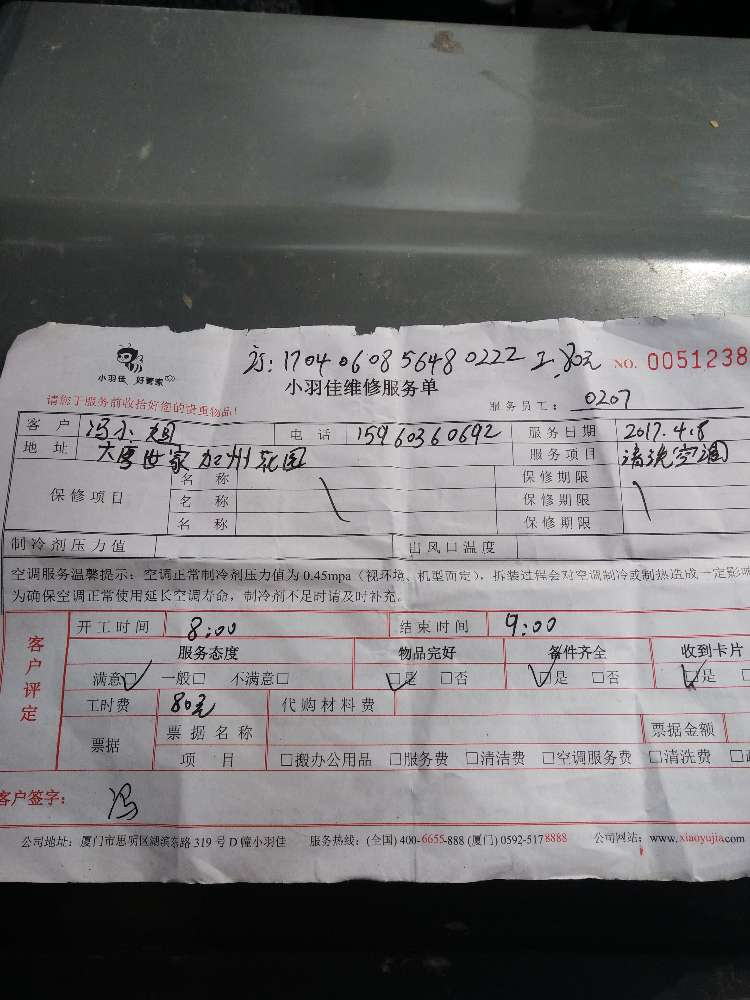 方: 1704 0608 5648 0222 工.80元
NO. 0051238
小羽佳 好管家
小羽佳维修服务单
请您于服务前收拾好您的贵重物品!
服务员工: 0207
客户 冯小姐 电话 15960360692 服务日期 2017.4.8
地址 大唐世家加州花园 服务项目 清洗空调
保修项目 名称 保修期限
名称 保修期限
名称 保修期限
制冷剂压力值 出风口温度
空调服务温馨提示：空调正常制冷剂压力值为 0.45mpa（视环境、机型而定），拆装过程会对空调制冷或制热造成一定影
为确保空调正常使用延长空调寿命，制冷剂不足时请及时补充。
客户评定
开工时间 8:00 结束时间 9:00
服务态度 物品完好 备件齐全 收到卡片
满意☑ 一般□ 不满意□ ☑是 □否 ☑是 □否 ☑是 □
工时费 80元 代购材料费
票据 票据名称 票据金额
项目 □搬办公用品 □服务费 □清洁费 □空调服务费 □清洗费
客户签字： 冯
公司地址：厦门市思明区湖滨东路 319 号 D 幢小羽佳 服务热线：(全国) 400-6655-888 (厦门) 0592-5178888 公司网站：www.xiaoyujia.com